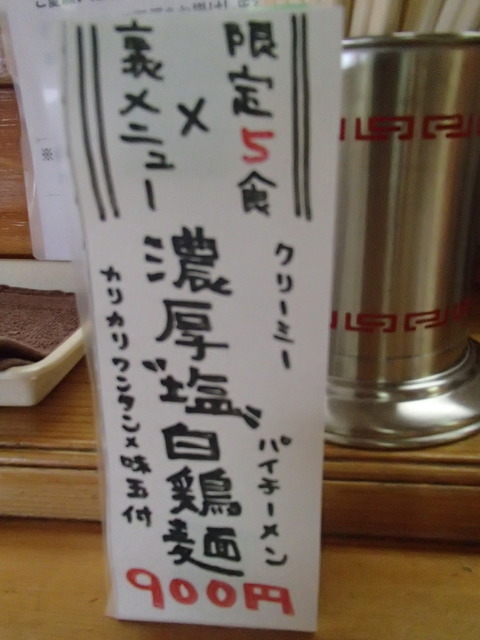 限定5食
×
裏メニュー
クリーミー
濃厚"塩"白鶏麺
パイチーメン
カリカリワンタン×味玉付
900円
※